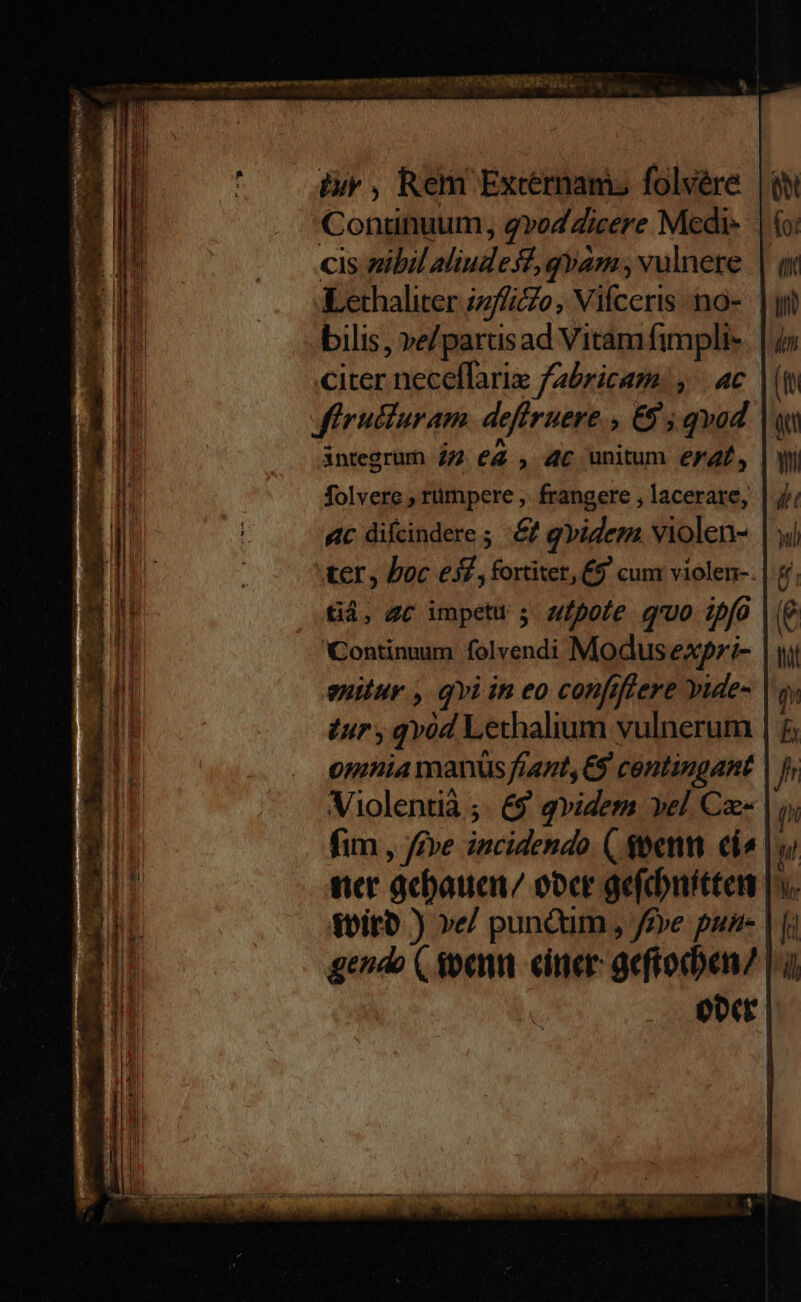 tur, Rem Externam, ſolvêre
Continuum, qvod dicere Medi-
cis nihil aliud eſt, qvàm, vulnere
Lethaliter inflicto, Viſceris no-
bilis, vel partis ad Vitam ſimpli-
citer neceſſariæ fabricam, ac
ſtructuram deſtruere, & ; qvod
integrum in eâ, ac unitum erat,
ſolvere, rumpere, frangere, lacerare,
ac diſcindere ; & qvidem violen-
ter, hoc eſt, fortiter, & cum violen-
tiâ, ac impetu ; utpote quo ipſo
Continuum ſolvendi Modus expri-
mitur, qvi in eo conſiſtere vide-
tur, qvòd Lethalium vulnerum
omnia manûs fiant, & contingant
Violentiâ ; & qvidem vel Cæ-
ſim, ſive incidendo ( wenn ei-
ner gehauen/ oder geſchnitten
wird ) vel punctim, ſive pun-
gendo ( wenn einer geſtochen/
oder